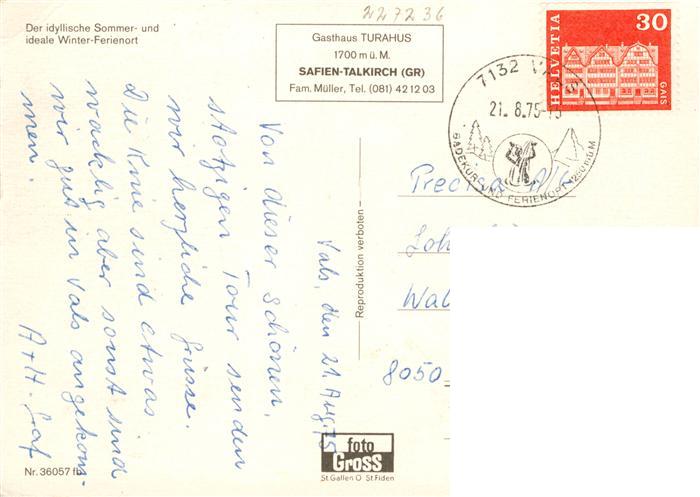 227236
Der idyllische Sommer- und
ideale Winter-Ferienort
Gasthaus TURAHUS
1700 m ü. M.
SAFIEN-TALKIRCH (GR)
Fam. Müller, Tel. (081) 42 12 03
HELVETIA
30
GAIS
7132 VALS
21. 8.75-15
BADEKUR UND FERIENORT 1250 m ü M
Vals, den 21. Aug. 75
Von dieser schönen,
stotzigen Tour senden
wir herzliche Grüsse.
Die Knie sind etwas
wacklig aber sonst sind
wir gut in Vals angekom-
men.
A+H. Graf
– Reproduktion verboten –
Precisa AG
8050
foto
Gross
St.Gallen O St.Fiden
Nr. 36057